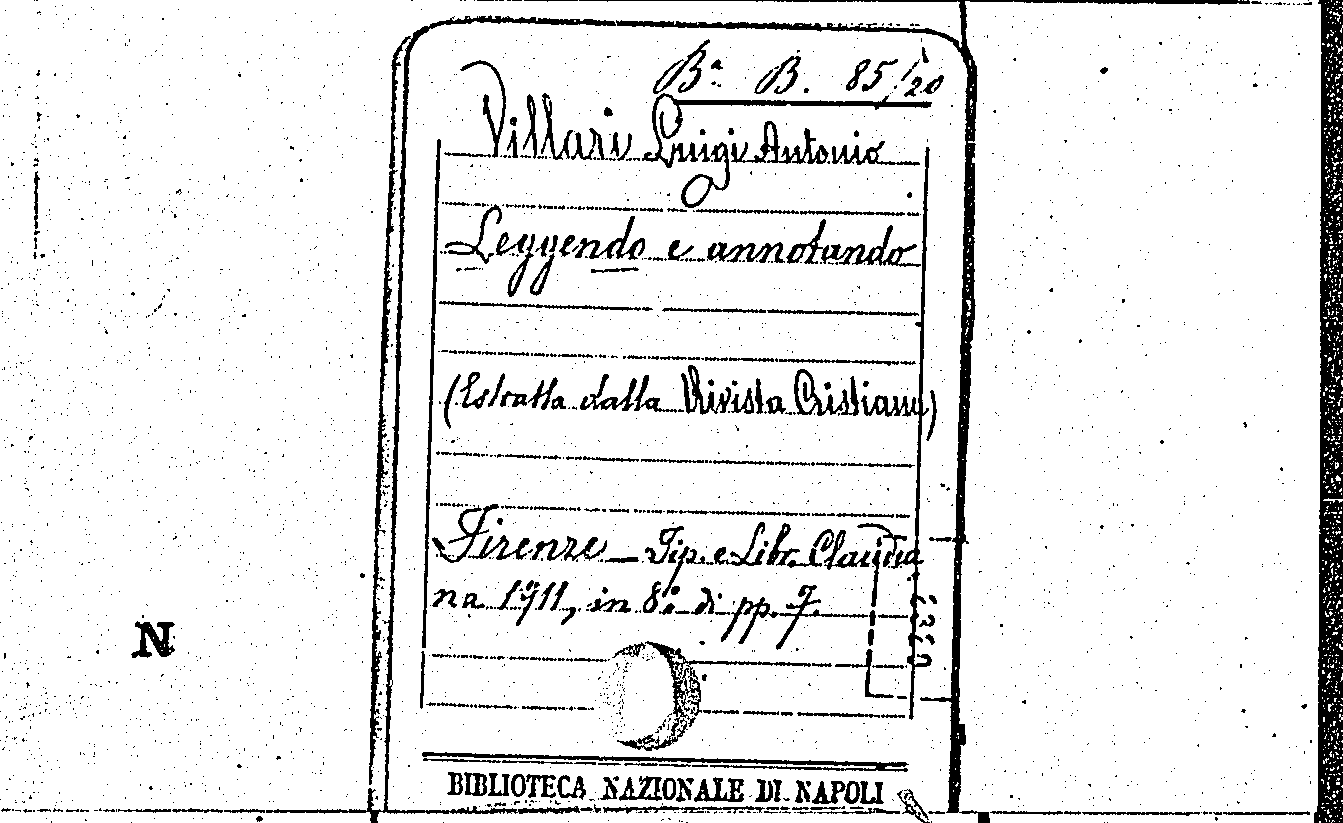 Bª B. 85/20
Villari Luigi Antonio
Leggendo e annotando
(Estratta dalla Rivista Cristiana)
Firenze – Tip. e Libr. Claudia
na 1911, in 8º di pp. 7.
N
BIBLIOTECA NAZIONALE DI NAPOLI